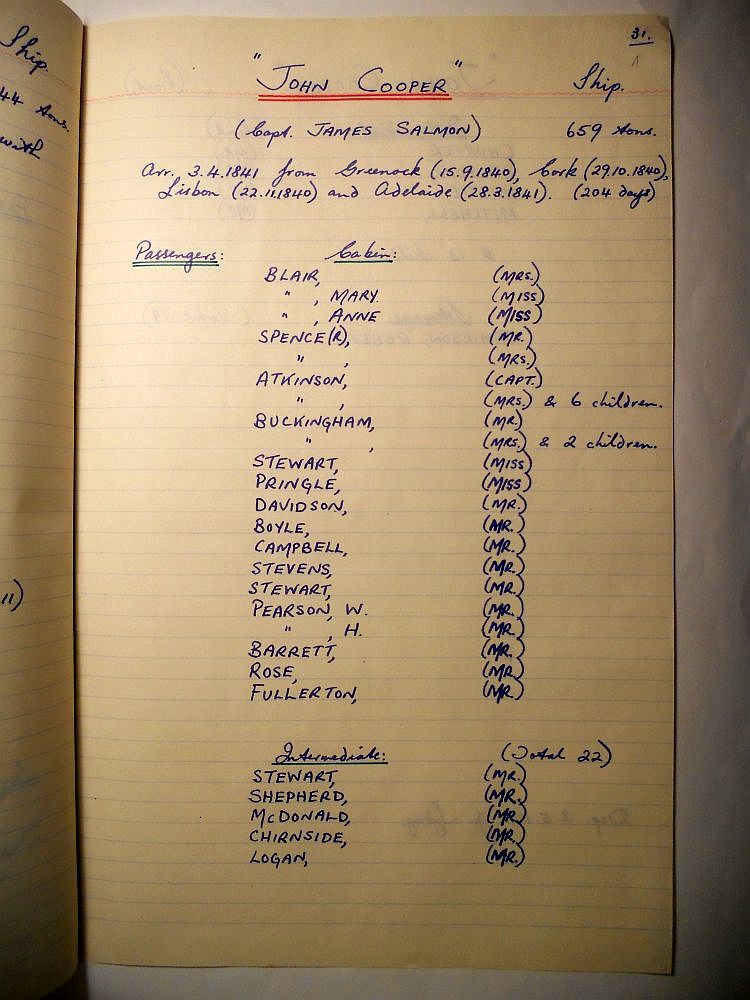 31.
"JOHN COOPER" Ship.
(Capt. JAMES SALMON) 659 tons.
Arr. 3.4.1841 from Greenock (15.9.1840), Cork (29.10.1840),
Lisbon (22.11.1840) and Adelaide (28.3.1841). (204 days)
Passengers: Cabin:
BLAIR, (MRS.)
" , MARY. (MISS)
" , ANNE (MISS)
SPENCE(R), (MR.)
" , (MRS.)
ATKINSON, (CAPT.)
" , (MRS.) & 6 children.
BUCKINGHAM, (MR.)
" , (MRS.) & 2 children.
STEWART, (MISS)
PRINGLE, (MISS)
DAVIDSON, (MR.)
BOYLE, (MR.)
CAMPBELL, (MR.)
STEVENS, (MR.)
STEWART, (MR.)
PEARSON, W. (MR.)
" , H. (MR.)
BARRETT, (MR.)
ROSE, (MR.)
FULLERTON, (MR.)
Intermediate: (Total 22)
STEWART, (MR.)
SHEPHERD, (MR.)
McDONALD, (MR.)
CHIRNSIDE, (MR.)
LOGAN, (MR.)
Ship.
44 tons.
with
11)